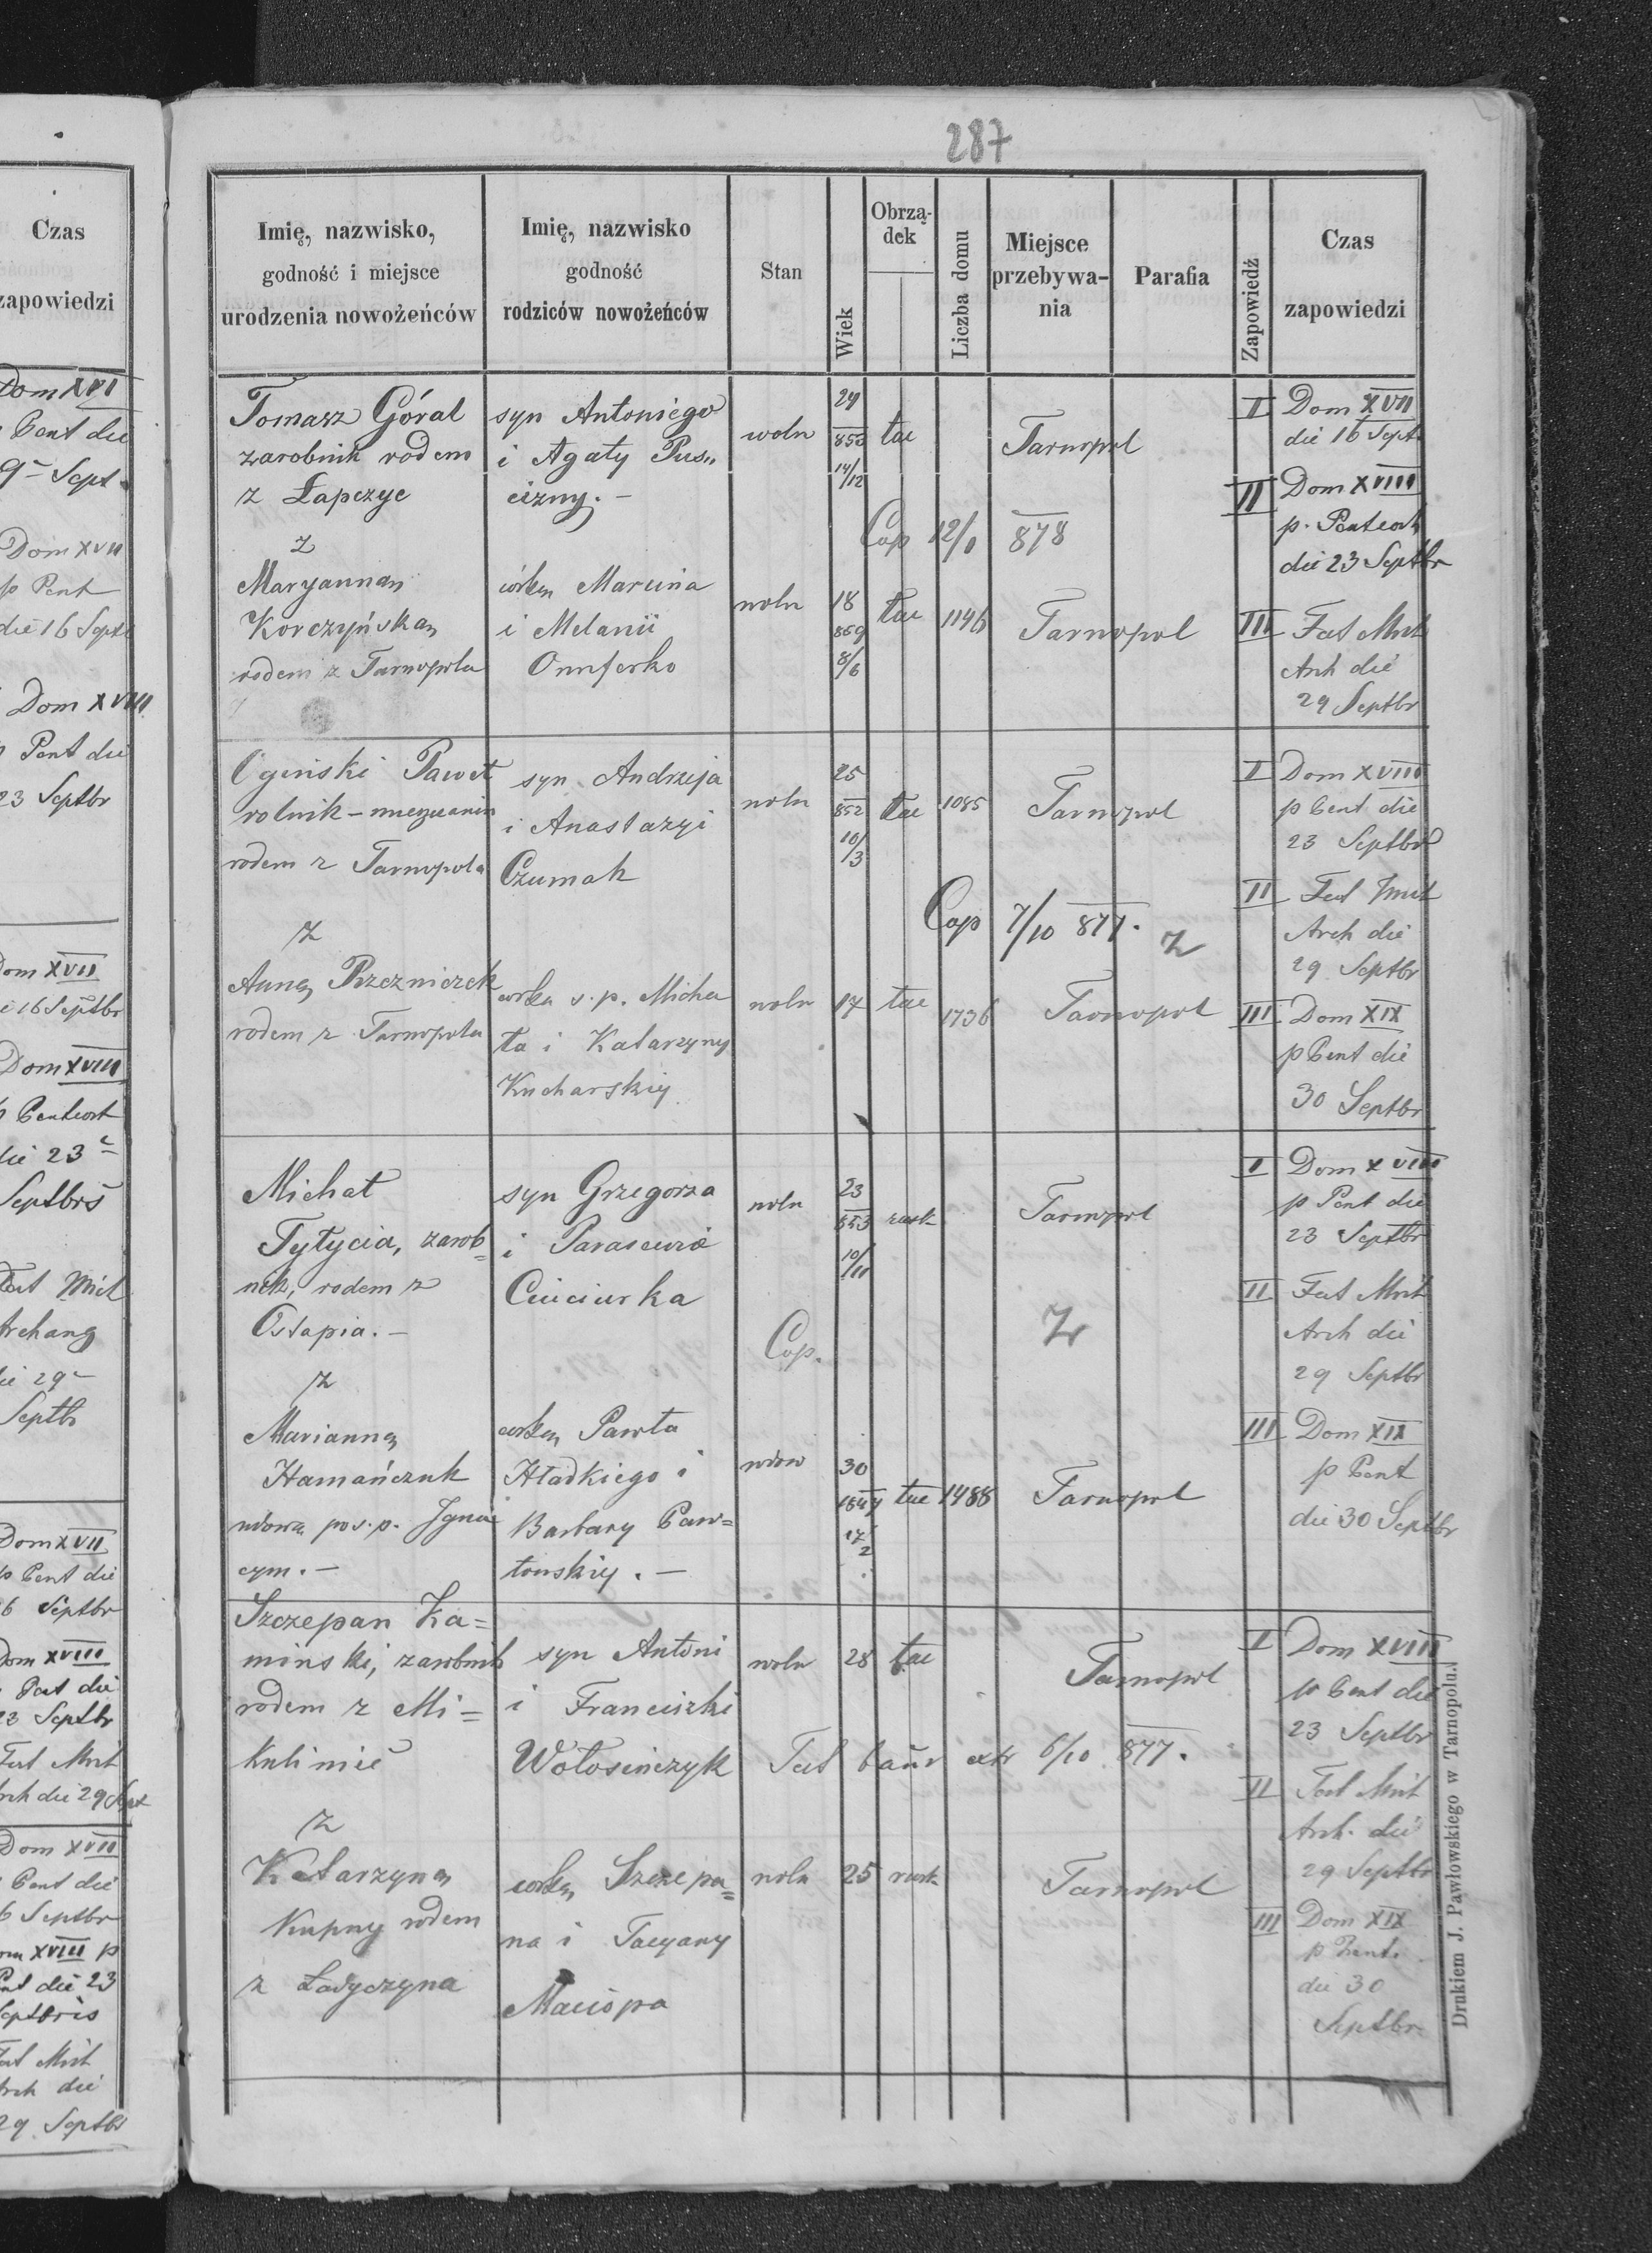 287
Czas
zapowiedzi
Dom XVI
Pent die
9 Sept.
Dom XVII
p Pent
die 16 Septb
Dom XVIII
p Pent die
23 Septbr
Dom XVII
die 16 Septbr
Dom XVIII
p Pentecost
die 23
Septbris
Fest Mich
Archang
die 29
Septbr
Dom XVII
p Pent die
16 Septbr
Dom XVIII
p Pent die
23 Septbr
Fest Mich
Arch die 29 Sept
Dom XVII
p Pent die
16 Septbr
Dom XVIII p
Pent die 23
Septbris
Fest Mich
Arch die
29 Septbr
Imię, nazwisko,
godność i miejsce
urodzenia nowożeńców
Imię, nazwisko
godność
rodziców nowożeńców
Stan
Wiek
Obrzą-
dek
Liczba domu
Miejsce
przebywa-
nia
Parafia
Zapowiedź
Czas
zapowiedzi
Tomasz Góral
zarobnik rodem
z Łapczyc
syn Antoniego
i Agaty Pus„
cizny. –
woln
24
853
14/12
łac
Tarnopol
Cop 12/1 878
z
Maryanną
Korczyńską
rodem z Tarnopola
córką Marcina
i Melanii
Onuferko
woln
18
859
8/6
łac
1146
Tarnopol
I Dom XVII
die 16 Sept.
II Dom XVIII
p. Pentecost
die 23 Septbr
III Fest Mich
Arch die
29 Septbr
Ogiński Paweł
rolnik – mieszczanin
rodem z Tarnopola
syn Andrzeja
i Anastazyi
Czumak
woln
25
852
10/3
łac
1085
Tarnopol
Cop 7/10 877. Z
z
Anną Rzeźniczek
rodem z Tarnopola
córką ś. p. Micha
ła i Katarzyny
Kucharskiej
woln
17
łac
1736
Tarnopol
I Dom XVIII
p Pent die
23 Septbr
II Fest Mich
Arch die
29 Septbr
III Dom XIX
p Pent die
30 Septbr
Michał
Tytycia, zarob=
nik, rodem z
Ostapia. –
syn Grzegorza
i Parascewia
Ciuciurka
woln
23
853
10/11
rusk
Tarnopol
Cop.
Z
z
Marianną
Hamańczuk
wdową po ś. p. Igna
cym. –
córką Pawła
Hładkiego i
Barbary Paw=
łowskiej. –
wdow
30
1847
17/2
łac
1488
Tarnopol
I Dom XVIII
p Pent die
23 Septbr
II Fest Mich
Arch die
29 Septbr
III Dom XIX
p Pent
die 30 Septbr
Szczepan Ka=
miński, zarobnik
rodem z Mi=
kulinic
syn Antoni
i Franciszki
Wołosińczyk
woln
28
łac
Tarnopol
Test bann ext 6/10 877.
z
Katarzyną
Kupny rodem
z Ładyczyna
córką Szczepa=
na i Tacyany
Maciopa
woln
25
rusk
Tarnopol
I Dom XVIII
p Pent die
23 Septbr
II Fest Mich
Arch. die
29 Septbr
III Dom XIX
p Pent.
die 30
Septbr
Drukiem J. Pawłowskiego w Tarnopolu.